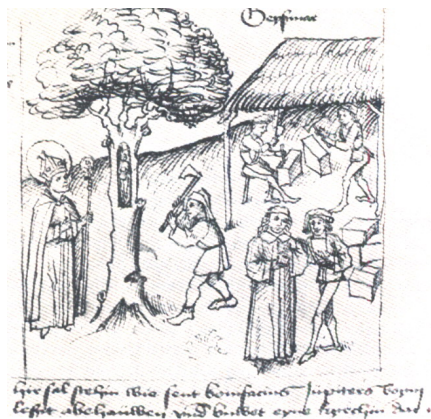 Geysmar
hir sal stehin wie sent bonifacius Jupiters boym
lessit abehauwen und buwet eyne kyrchin dar